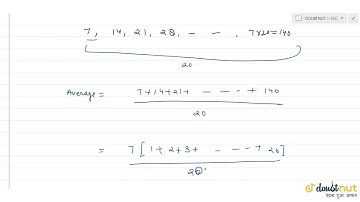 DOUBTNUT > SSC
7, 14, 21, 28, - - , 7×20=140
20
Average = 7+14+21+ - - - - + 140
20
= 7[1+2+3+ - - - - + 20]
20
doubtnut